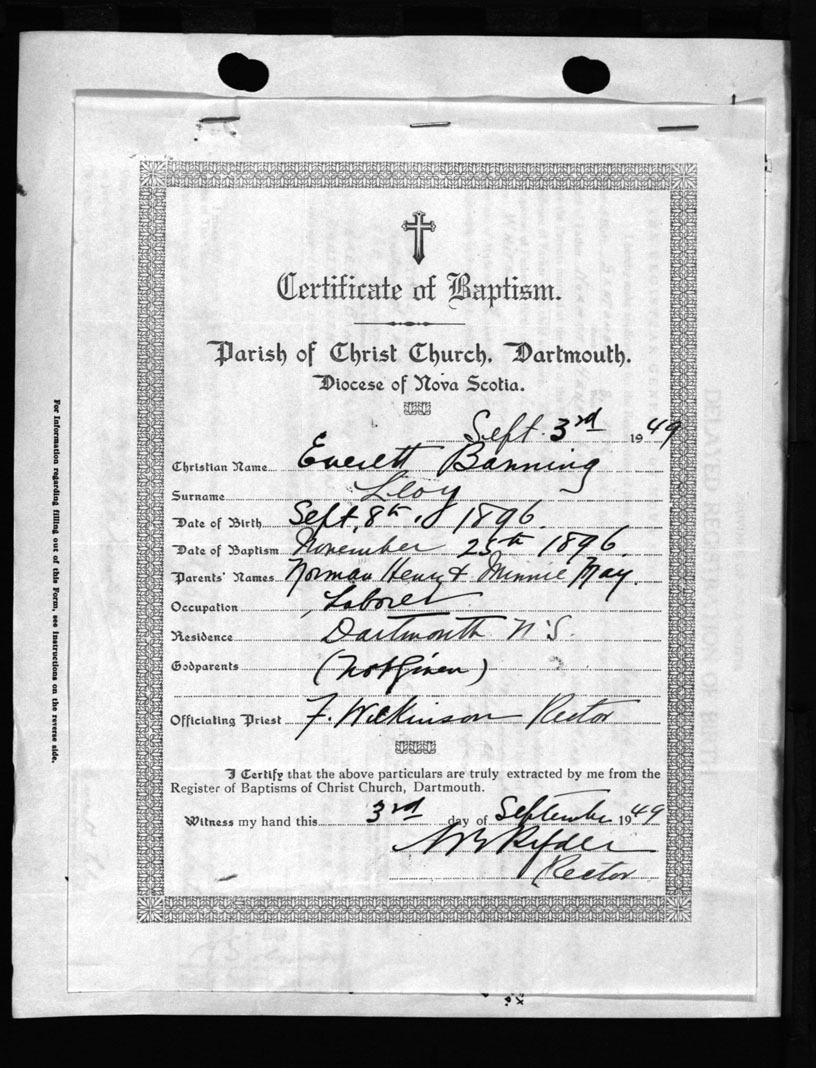 Certificate of Baptism.
Parish of Christ Church, Dartmouth.
Diocese of Nova Scotia.
Sept. 3rd 1949
Christian Name Everett Banning
Surname
Date of Birth Sept. 8th. 1896.
Date of Baptism November 25th 1896.
Parents' Names Norman Henry & Minnie May.
Occupation Laborer
Residence Dartmouth N.S.
Godparents (not given)
Officiating Priest F. Wilkinson Rector
I Certify that the above particulars are truly extracted by me from the
Register of Baptisms of Christ Church, Dartmouth.
Witness my hand this 3rd day of September 1949
Ryder
Rector
For Information regarding filling out of this Form, see Instructions on the reverse side.
DELAYED REGISTRATION OF BIRTH